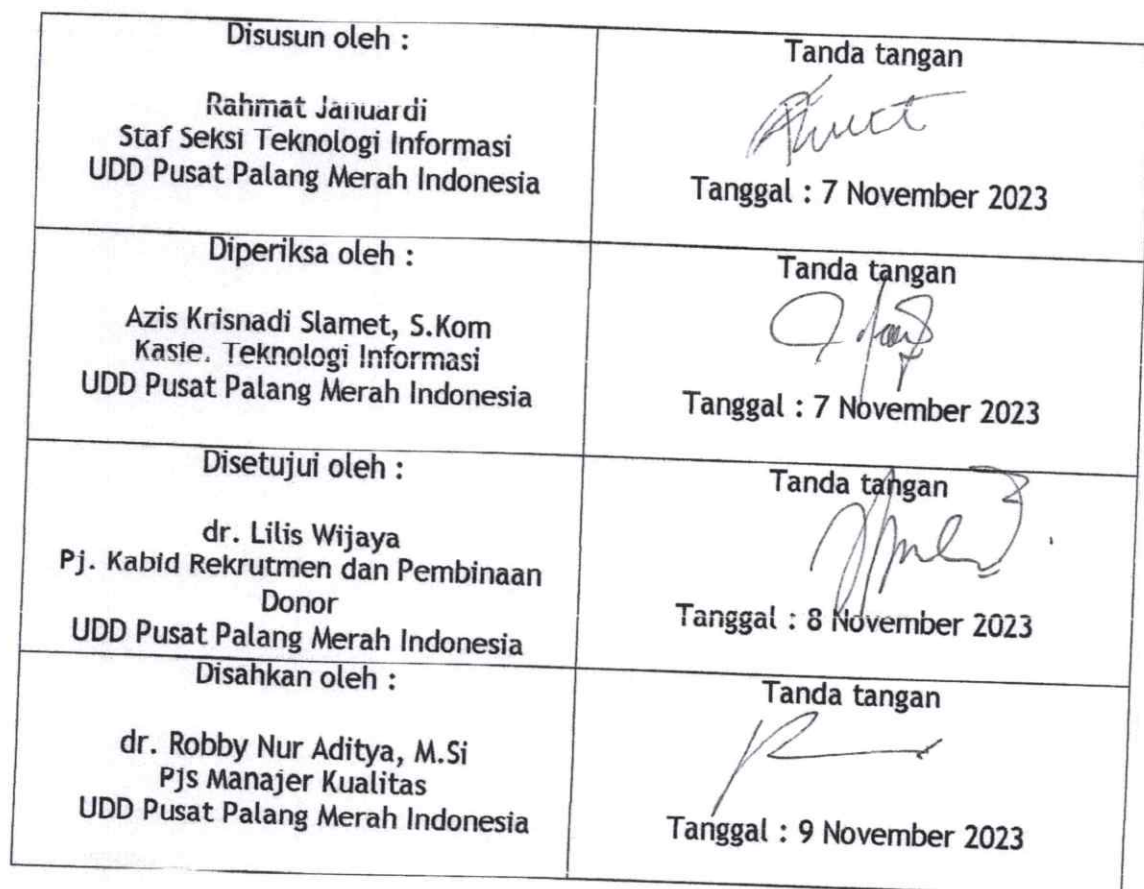 Disusun oleh :
Rahmat Januardi
Staf Seksi Teknologi Informasi
UDD Pusat Palang Merah Indonesia
Tanda tangan
Tanggal : 7 November 2023
Diperiksa oleh :
Azis Krisnadi Slamet, S.Kom
Kasie. Teknologi Informasi
UDD Pusat Palang Merah Indonesia
Tanda tangan
Tanggal : 7 November 2023
Disetujui oleh :
dr. Lilis Wijaya
Pj. Kabid Rekrutmen dan Pembinaan
Donor
UDD Pusat Palang Merah Indonesia
Tanda tangan
Tanggal : 8 November 2023
Disahkan oleh :
dr. Robby Nur Aditya, M.Si
Pjs Manajer Kualitas
UDD Pusat Palang Merah Indonesia
Tanda tangan
Tanggal : 9 November 2023